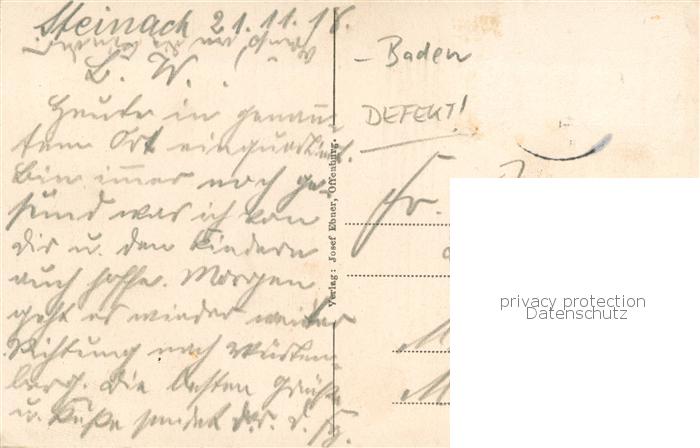 Steinach 21.11.18.
L. W.
Heute in genann-
tem Ort einquartiert.
Bin immer noch ge-
sund was ich von
dir u. den Kindern
auch hoffe. Morgen
geht es wieder weiter
Richtung nach Württem-
berg. Die besten Grüße
u. Küße sendet
Verlag: Josef Ebner, Offenburg.
– Baden
DEFEKT!
Fr.
privacy protection
Datenschutz